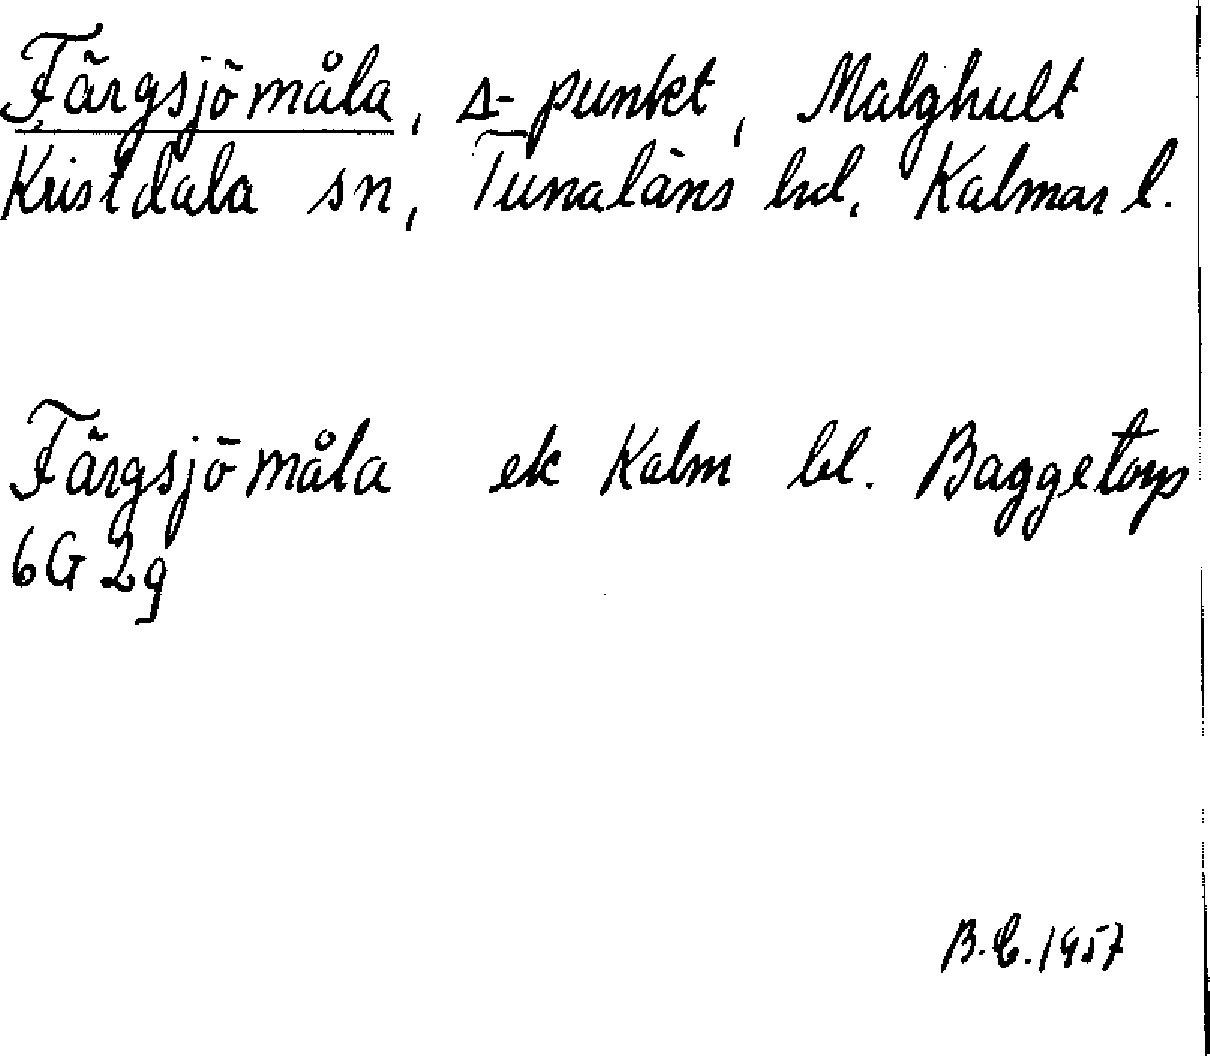 Färgsjömåla, Δ-punkt, Malghult
Kristdala sn, Tunaläns hd, Kalmar l.
Färgsjömåla ek Kalm bl. Baggetorp
6G 2g
B.E. 1957